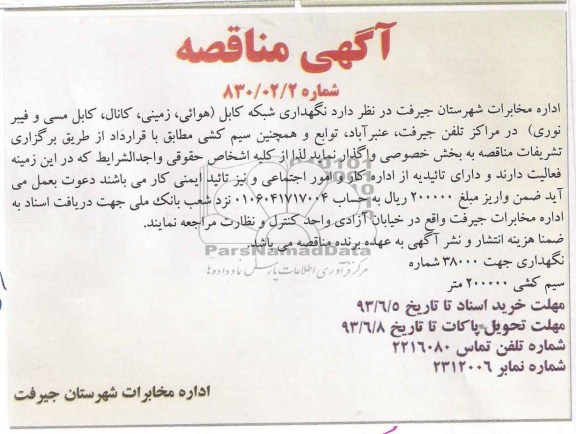 آگهی مناقصه
شماره ۸۳۰/۰۲/۲
اداره مخابرات شهرستان جیرفت در نظر دارد نگهداری شبکه کابل (هوائی، زمینی، کانال، کابل مسی و فیبر
نوری) در مراکز تلفن جیرفت، عنبرآباد، توابع و همچنین سیم کشی مطابق با قرارداد از طریق برگزاری
تشریفات مناقصه به بخش خصوصی واگذار نماید لذا از کلیه اشخاص حقوقی واجدالشرایط که در این زمینه
فعالیت دارند و دارای تائیدیه از اداره کار و امور اجتماعی و نیز تائید ایمنی کار می باشند دعوت بعمل می
آید ضمن واریز مبلغ ۲۰۰۰۰۰ ریال به حساب ۰۱۰۶۰۴۱۷۱۷۰۰۴ نزد شعب بانک ملی جهت دریافت اسناد به
اداره مخابرات جیرفت واقع در خیابان آزادی واحد کنترل و نظارت مراجعه نمایند.
ضمنا هزینه انتشار و نشر آگهی به عهده برنده مناقصه می باشد.
ParsNamadData
نگهداری جهت ۳۸۰۰۰ شماره
مرکز فرآوری اطلاعات پارس نماد داده ها
سیم کشی ۲۰۰۰۰۰ متر
مهلت خرید اسناد تا تاریخ ۹۳/۶/۵
مهلت تحویل پاکات تا تاریخ ۹۳/۶/۸
شماره تلفن تماس ۲۲۱۶۰۸۰
شماره نمابر ۲۳۱۲۰۰۶
اداره مخابرات شهرستان جیرفت